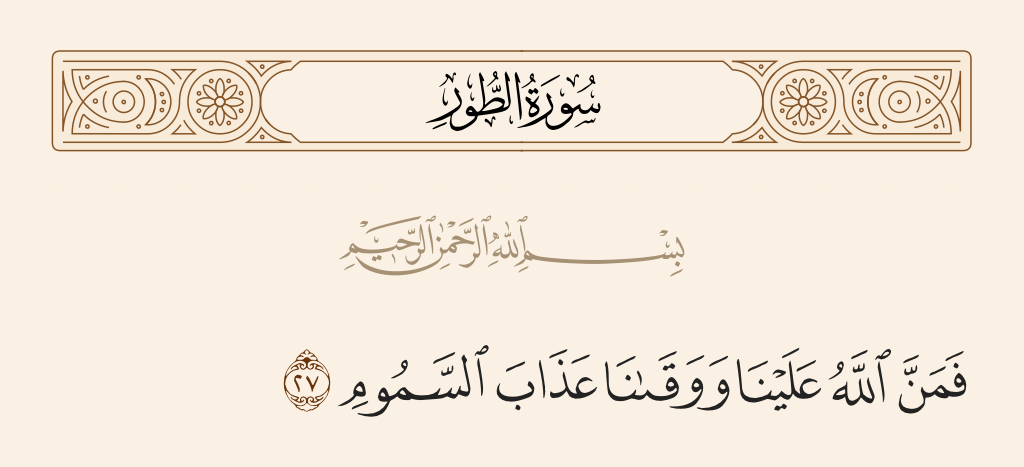 سُورَةُ الطُّورِ
بِسْمِ ٱللَّهِ ٱلرَّحْمَٰنِ ٱلرَّحِيمِ
فَمَنَّ ٱللَّهُ عَلَيْنَا وَوَقَىٰنَا عَذَابَ ٱلسَّمُومِ ٢٧